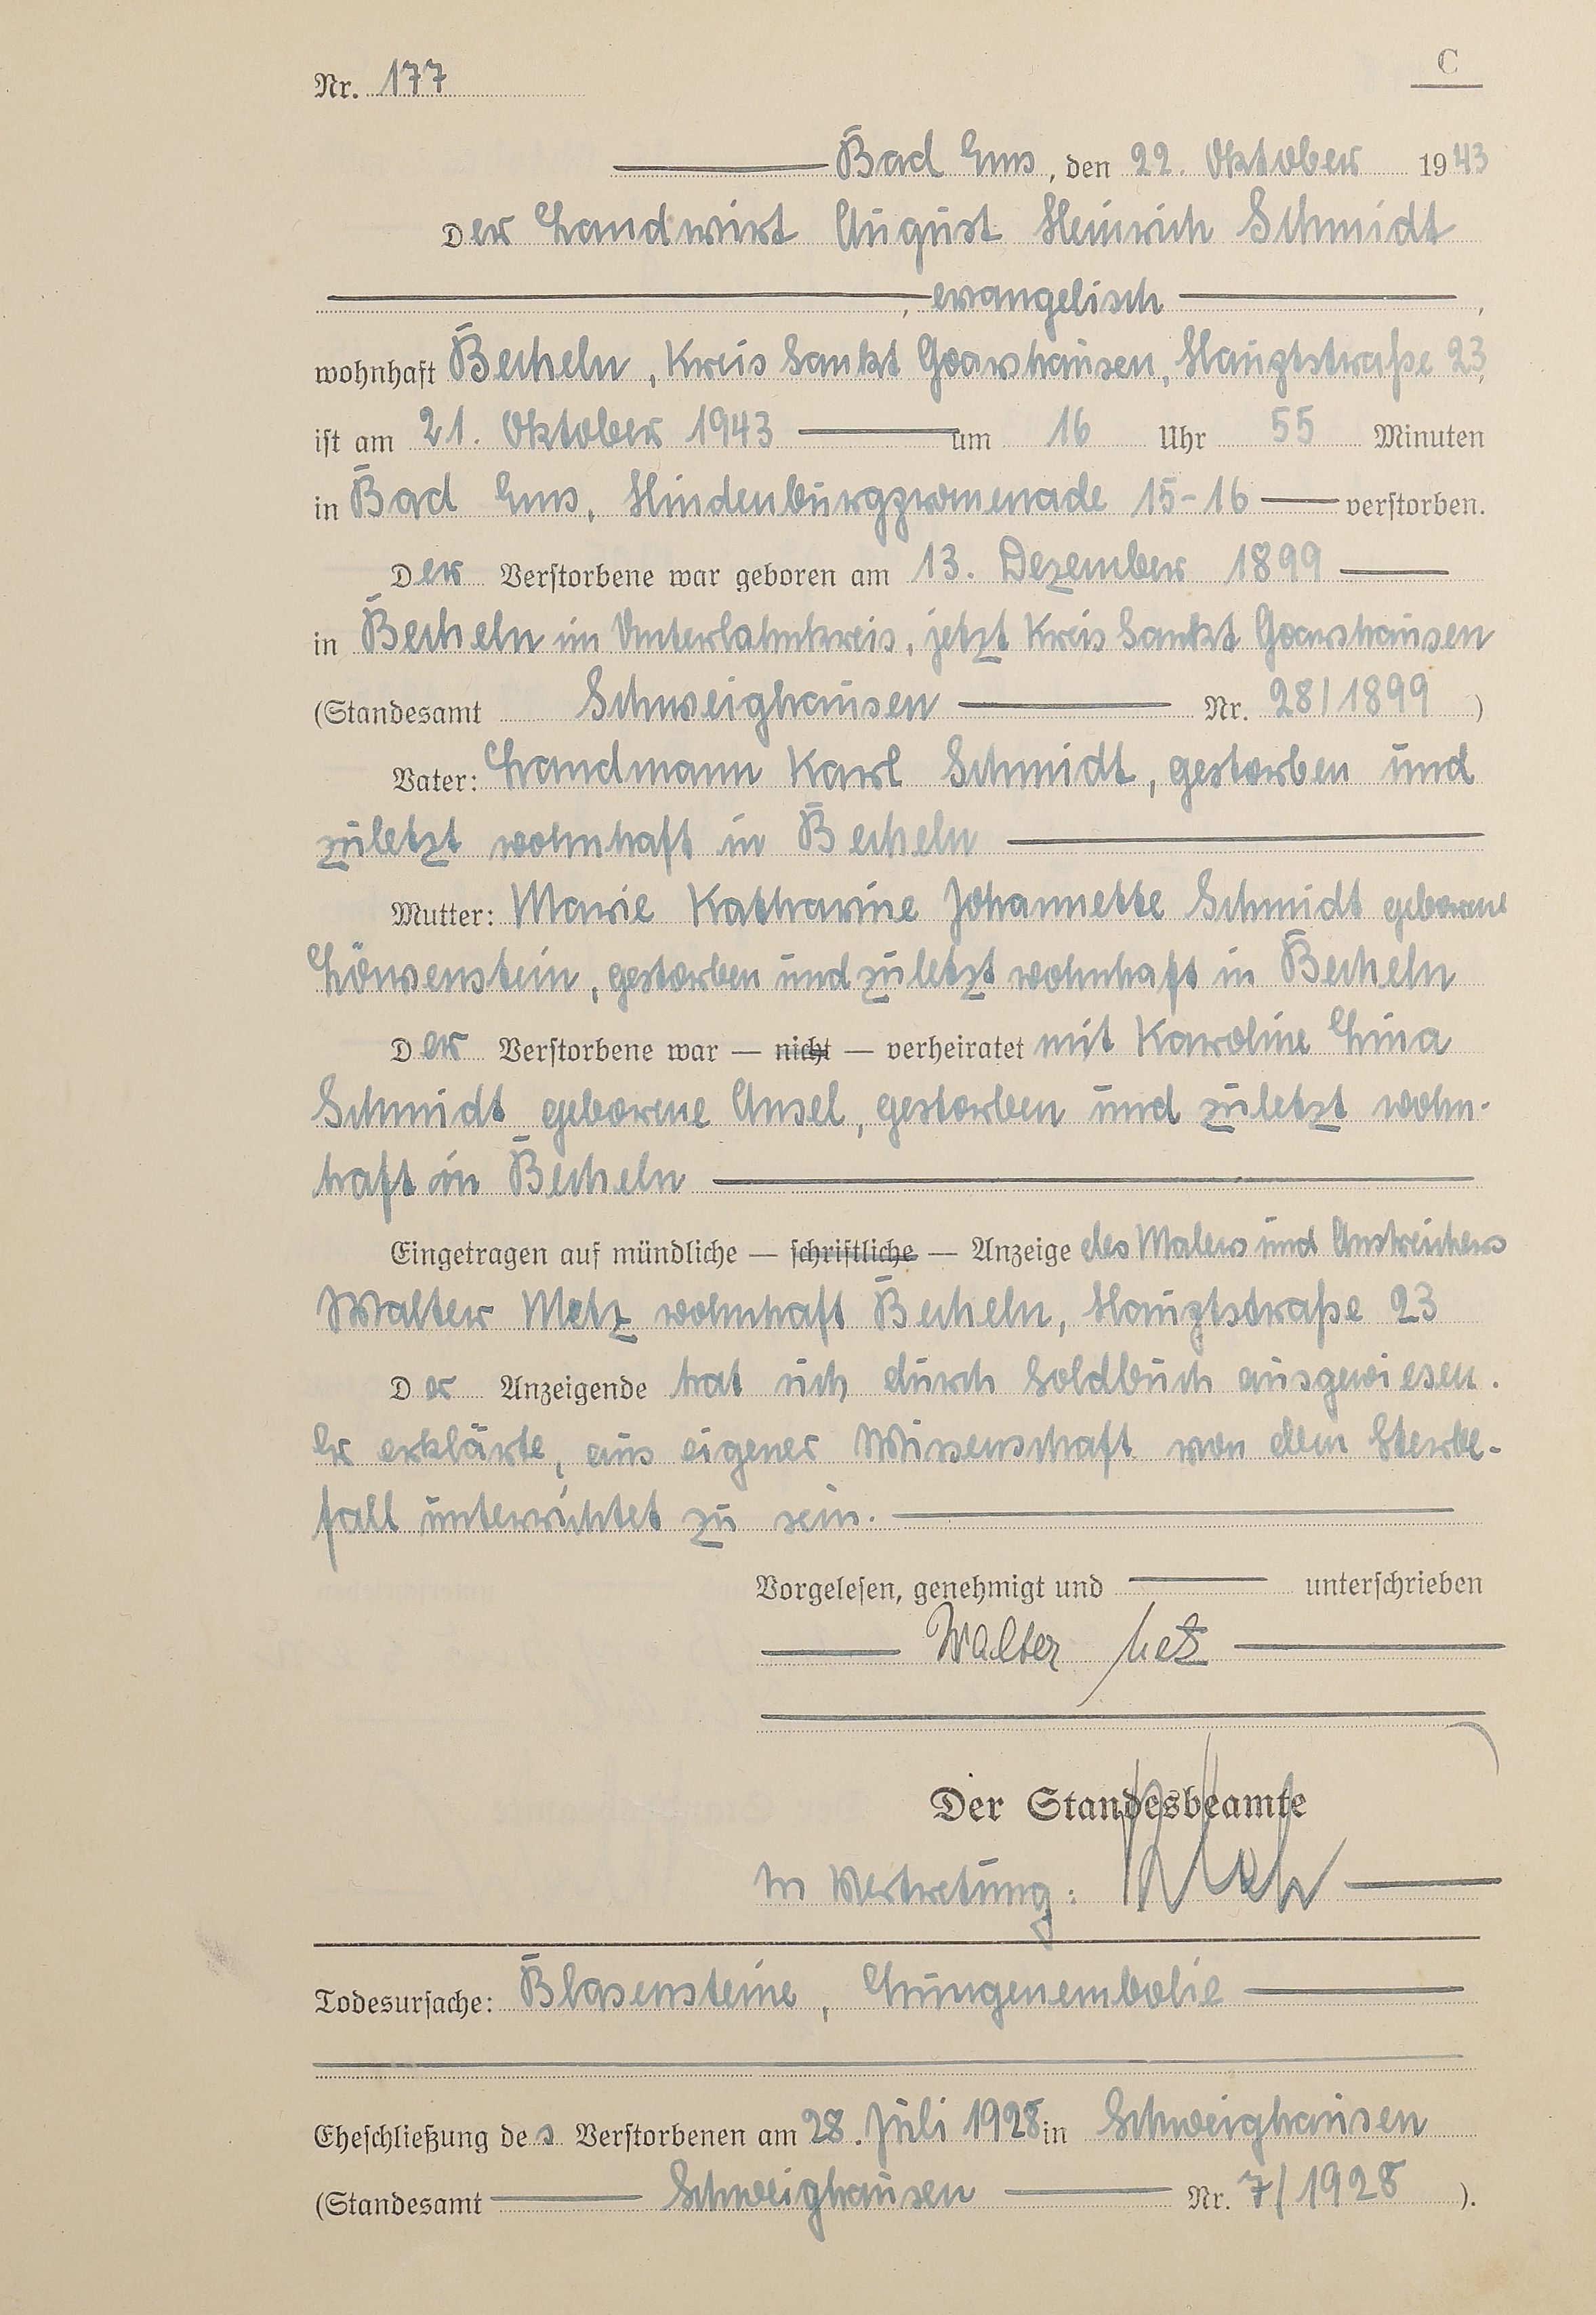 C
Nr. 177
Bad Ems, den 22. Oktober 1943
Der Landwirt August Heinrich Schmidt
, evangelisch ,
wohnhaft Becheln, Kreis Sankt Goarshausen, Hauptstraße 23,
ist am 21. Oktober 1943 um 16 Uhr 55 Minuten
in Bad Ems, Hindenburgpromenade 15-16 verstorben.
Der Verstorbene war geboren am 13. Dezember 1899
in Becheln im Unterlahnkreis, jetzt Kreis Sankt Goarshausen
(Standesamt Schweighausen Nr. 28/1899 )
Vater: Landmann Karl Schmidt, gestorben und
zuletzt wohnhaft in Becheln
Mutter: Marie Katharine Johannette Schmidt geborene
Löwenstein, gestorben und zuletzt wohnhaft in Becheln
Der Verstorbene war — nicht — verheiratet mit Karoline Lina
Schmidt geborene Ansel, gestorben und zuletzt wohn-
haft in Becheln
Eingetragen auf mündliche — schriftliche — Anzeige des Malers und Anstreichers
Walter Metz wohnhaft Becheln, Hauptstraße 23
Der Anzeigende hat sich durch Soldbuch ausgewiesen.
Er erklärte, aus eigener Wissenschaft von dem Sterbe-
fall unterrichtet zu sein.
Vorgelesen, genehmigt und unterschrieben
Walter Metz
Der Standesbeamte
In Vertretung:
Todesursache: Blasensteine, Lungenembolie
Eheschließung des Verstorbenen am 28. Juli 1928 in Schweighausen
(Standesamt Schweighausen Nr. 7/1928 ).